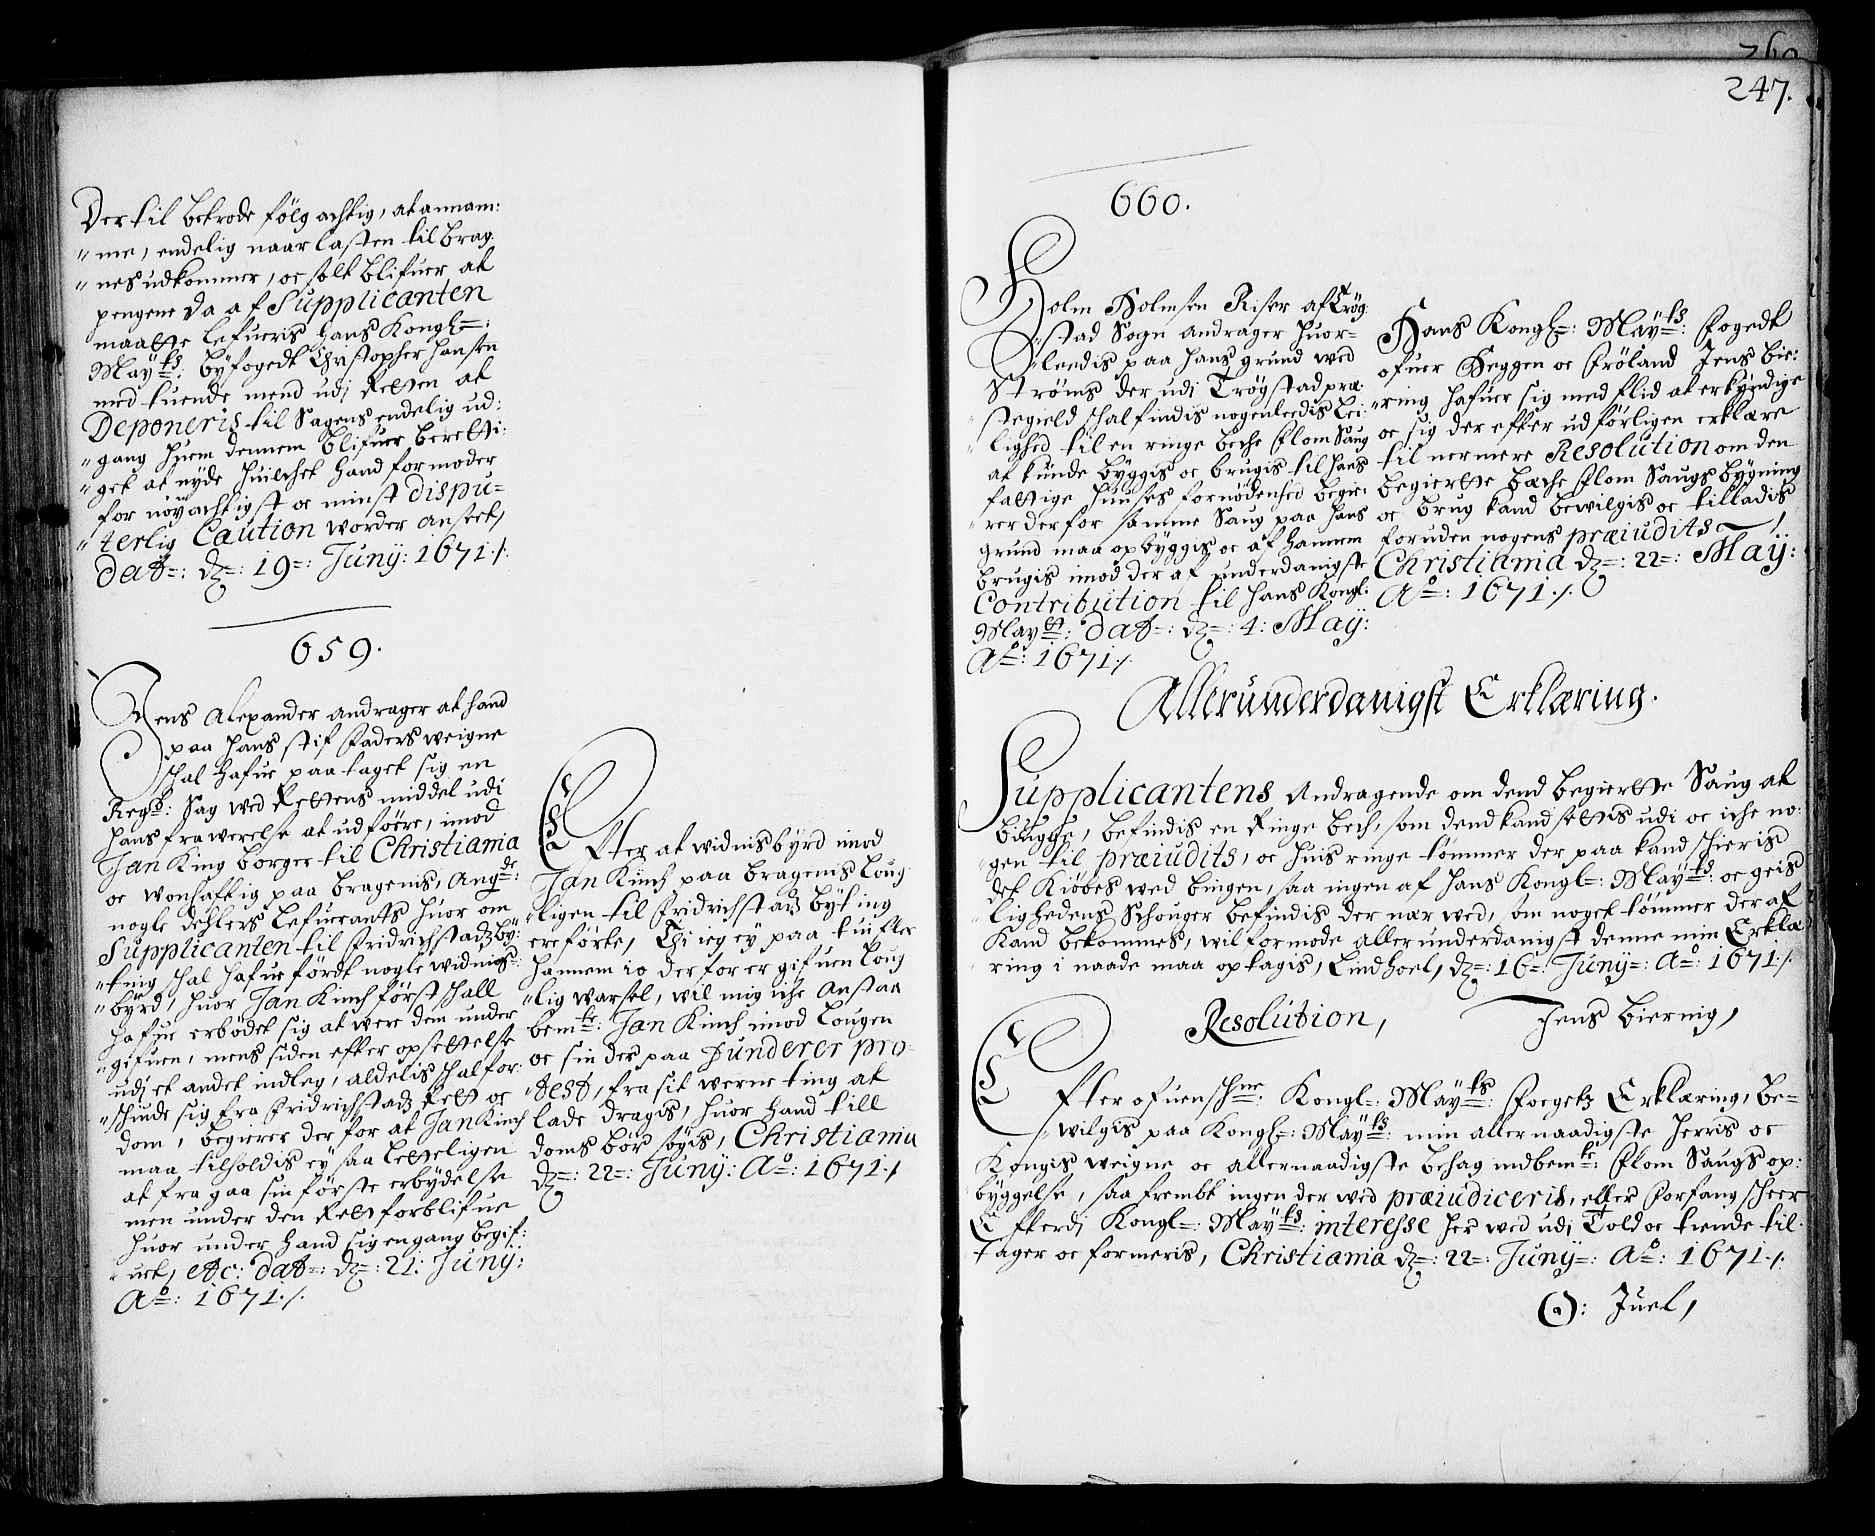 Der til betrode følg achtig, at annam:
" me, endelig naar lasten til Brag
" nes udkommer, oc solt blifuer at
pengene da af Supplicanten
maatte lefueris Hans Kongl=:
May=ts: byfogedt Christopher Hansen
med tuende mend udj Retten at
Deponeris til Sagens endelig ud:
" gang Huem dennem blifuer beretti:
" get at nyde Huilchet Hand formoder
for nöyachtigst oc minst dispu=
" terlig Caution worder anseet,
dat=: dz=: 19=: Junij: 1671 ./.
659.
Jens Alexander andrager at hand
paa Hans stif Faders weigne
schal Hafue paa taget sig en
Regsz: Sag wed Rettens middel udi
Hans frawerelse at udföere, imod
Jan King borger til Christiania
oc wonhaftig paa Bragenis, Ang=de:
nogle dehlers Lefuerants Huor om
Supplicanten til Fridrichstadz by:
" ting schal Hafue fördt nogle widnis=
" byrd, Huor Jan Kinch först schall
Hafue erbödet sig at were dem under
" gifuen, mens siden efter opsettelse
udj et andet indleg, aldelis schal for:
" schiude sig fra Fridrichstadz Rett oc
dom, begierer der for at Jan Kinch
maa tilholdis ey saa letteligen
at fra gaa sin förste erbydelse
men under den Rett forblifue
Huor under Hand sig engang begif:
" uet, etc: dat=: dz=: 21: Junij:
Ao=: 1671 ./.
Efter at widnisbyrd imod
Jan Kinch paa Bragenis Loug
" ligen til Fridrichstadz byting
ere förte, Thi ieg ey paa
Hannem io der for er gifuen Loug
" lig warsel, wil mig iche anstaa
bem=te: Jan Kinch imod Lougen
oc sin der paa funderer pro=
" test, fra sit werne ting at
lade dragis, Huor Hand till
doms bör sögis, Christiania
dz=: 22=: Junij: Ao=: 1671 ./.
247.
660.
Holm Holmsen Riser af Trög
" stad Sogn andrager Huor=
" leedis paa Hans grund wed
Ströms der udi Trögstad præ
" stegield schal findis nogenleedis Lei
" lighed til en ringe beche flom Saug
at kunde byggis oc brugis til Hans
fattige Huuses fornödenhed begie:
" rer der for samme Saug paa Hans
grund maa opbyggis oc af Hannem
brugis imod der af underdanigste
Contribution til Hans Kongl:
May=tt: dat=: dz=: 4: Maij:
Ao=: 1671 ./.
Hans Kongl=: May=ts: Fogedt
ofuer Heggen oc Fröland Jens Bie:
" ring Hafuer sig med flid at erkyndige
oc sig der efter udförligen erklære
til nermere Resolution om den
begiertte beche flom Saugs bygning
oc brug kand bewilgis oc tilladis
foruden nogens præiudits ./.
Christiania dz=: 22=: Maij:
Ao=: 1671 ./.
Allerunderdanigst Erklæring.
Supplicantens Andragende om dend begiertte Saug at
bÿgge, befindis en Ringe bech, som dend kand settis udi oc iche no:
" gen til præiudits, oc Huis ringe tömmer der paa kand schieris
det Kiöbes wed bingen, saa ingen af Hans Kongl=: May=ts: oc geis
" lighedens Schouger befindis der nær wed, som noget tömmer der af
kand bekommes, wil formode allerunderdanigst denne min Erklæ
ring i naade maa optagis, Lindhoel, dz=: 16=: Junij=: Ao=: 1671 ./.
Jens Biernig,
Resolution,
Efter ofuenschr=ne: Kongl=: May=ts: Foegetz Erklæring, Be=
" wilgis paa Kongl=: May=ts: min allernaadigste Herris oc
Kongis weigne oc allernaadigste behag indbem=te: flom Saugs op:
byggelse, saa frembt ingen der wed præiudiceris, eller forfang scheer
Efterdj Kongl=: May=ts: interesse Her wed udi Told oc tiende til
tager oc formeris, Christiania dz=: 22=: Junij=: Ao=: 1671 ./.
O: Juel,